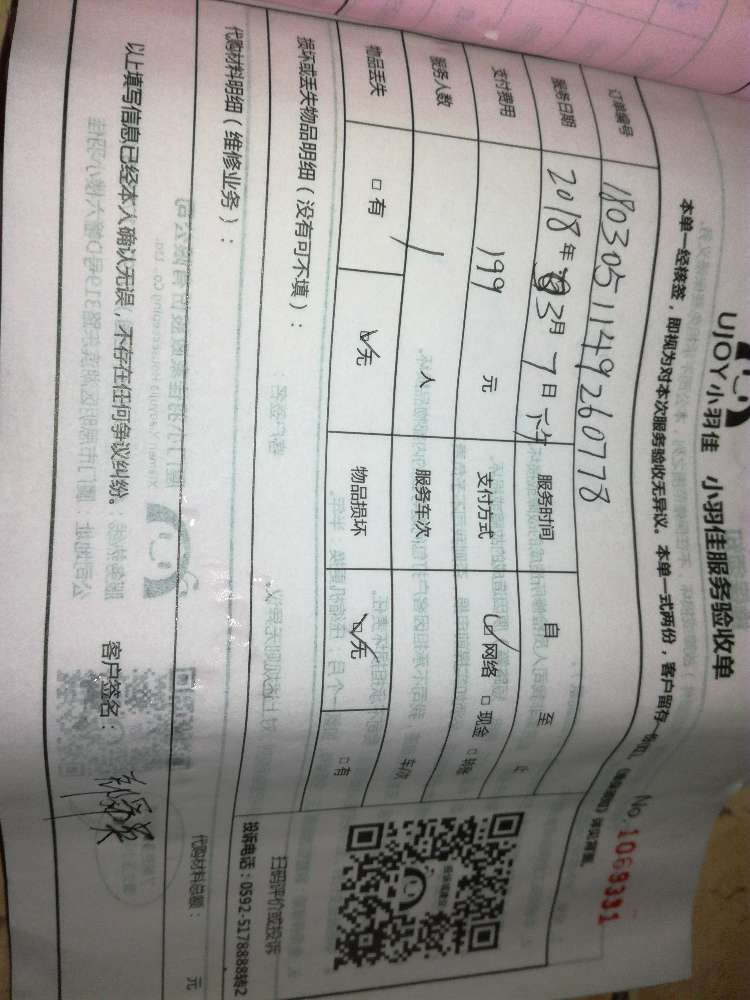 UJOY小羽佳 小羽佳服务验收单
No: 1069391
本单一经核签，即视为对本次服务验收无异议。本单一式两份，客户留存一份
订单编号 180305114926077８
服务日期 2018年03月7日下午 服务时间 自 至 止
支付费用 199 元 支付方式 ☑网络 □现金 □
服务人数 1 人 服务车次 车次
物品丢失 □有 ☑无 物品损坏 ☑无 □有
损坏或丢失物品明细（没有可不填）：
代购材料明细（维修业务）：
代购材料总额： 元
扫码评价或投诉
投诉电话：0592-5178888转2
以上填写信息已经本人确认无误，不存在任何争议纠纷。 客户签名：